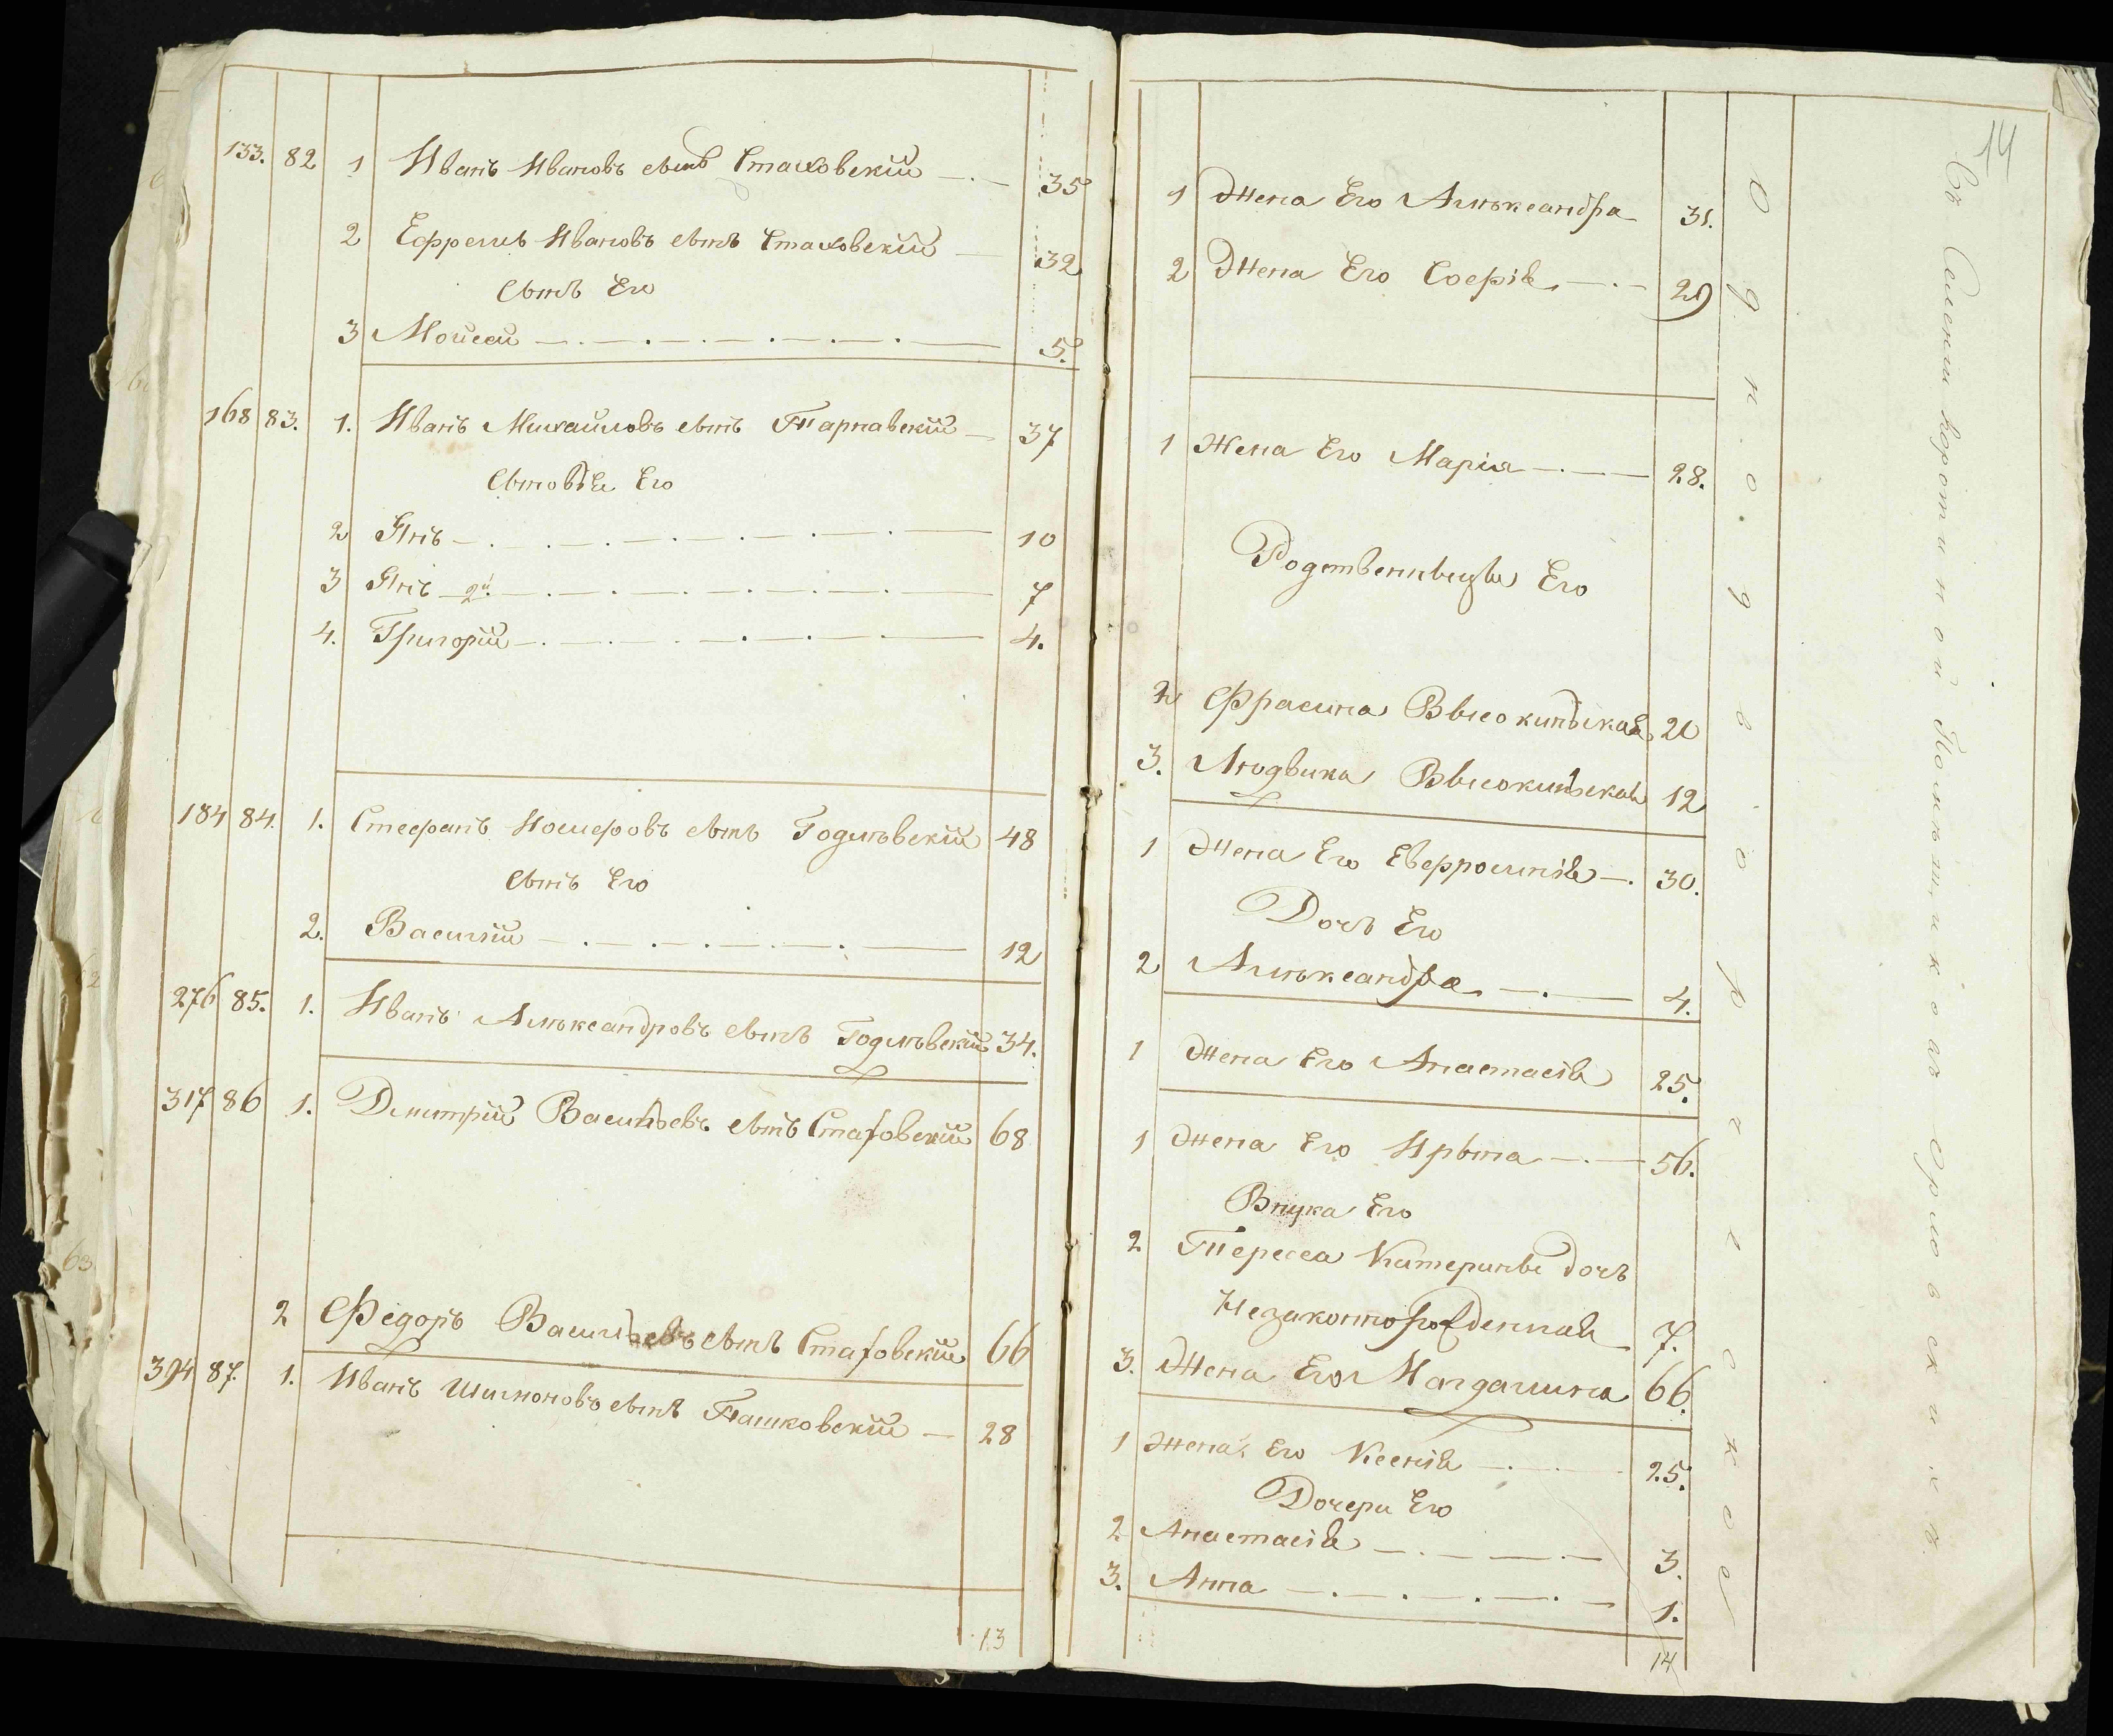 133. 82 1 Иванъ Ивановъ сынъ Стаховскій 35
2 Ефремъ Ивановъ сынъ Стаховскій 32
Сынъ Его
3 Мойсей 5.
168 83. 1. Иванъ Михайловъ сынъ Тарнавскій 37
Сыновья Его
2 Янъ 10
3 Янъ 2й 7
4. Григорій 4.
184 84. 1. Стефанъ сынъ Годлѣвскій 48
Сынъ Его
2. Василій 12
276 85. 1. Иванъ Алѣксандровъ сынъ Годлѣвскій 34.
317 86 1. Дмитрій Васильевъ сынъ Стаховскій 68
2 Федоръ Васильевъ сынъ Стаховскій 66
394 87. 1. Иванъ Шимоновъ сынъ Пашковскій 28
13
14
1 Жена Его Алѣксандра 31.
2 Жена Его Софія 29
1 Жена Его Марія 28.
Родственницы Его
2 Фрасина Высокинская 20
3. Людвика Высокинская 12
1 Жена Его Евфросинія 30.
Дочь Его
2 Алѣксандра 4.
1 Жена Его Анастасія 25.
1 Жена Его Ирына 56.
Внука Его
2 Тереса Катерины дочь
Незаконнорожденная 7.
3. Жена Его Магдалина 66.
1 Жена Его Ксенія 25.
Дочери Его
2 Анастасія 3.
3. Анна 1.
14
Однодворческое
Въ Селеніи